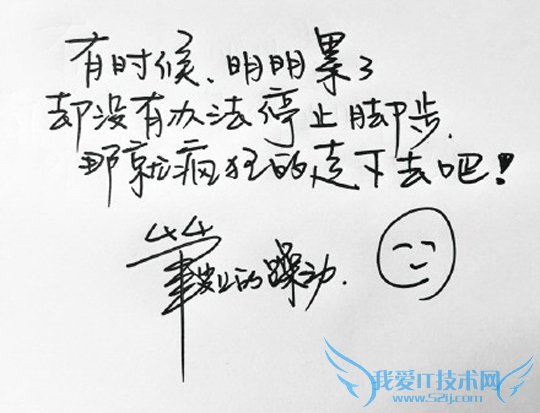 有时候、明明累了
却没有办法停止脚步.
那就疯狂的走下去吧!
筆上的躁动.
我爱IT技术网
www.52ij.com